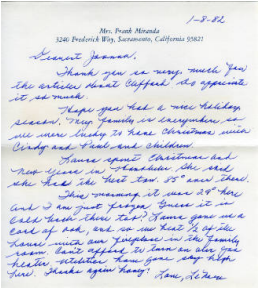 1-8-82
Mrs. Frank Miranda
3240 Frederick Way, Sacramento, California 95821
Dearest Joanna,
Thank you so very much for
the articles about Clifford. I do appreciate
it so much.
Hope you had a nice holiday
season. My family is everywhere so
we were lucky to have Christmas with
Cindy and Paul and children
spent Christmas and
New Years in She said
she had the best tan 85° over there.
This morning it was 29° here
and I am just frozen. Guess it is
cold back there too? gave me a
cord of oak, and so we heat ½ of the
house with our fireplace in the family
room. Can't afford to turn on the gas
heater utilities have gone sky high
here. Thanks again Love,